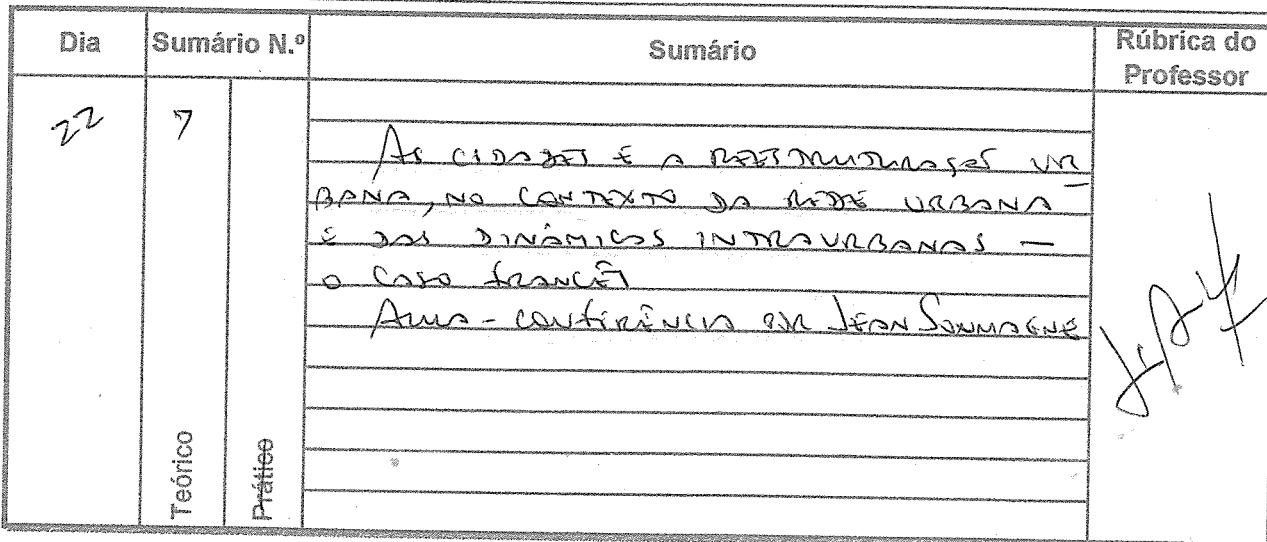 Dia Sumário N.º Sumário Rúbrica do Professor
22 7
As cidades e a reestruturação ur
bana, no contexto da rede urbana
e das dinâmicas intraurbanas —
o caso francês
Aula - conferência por Jean
Teórico
Prático